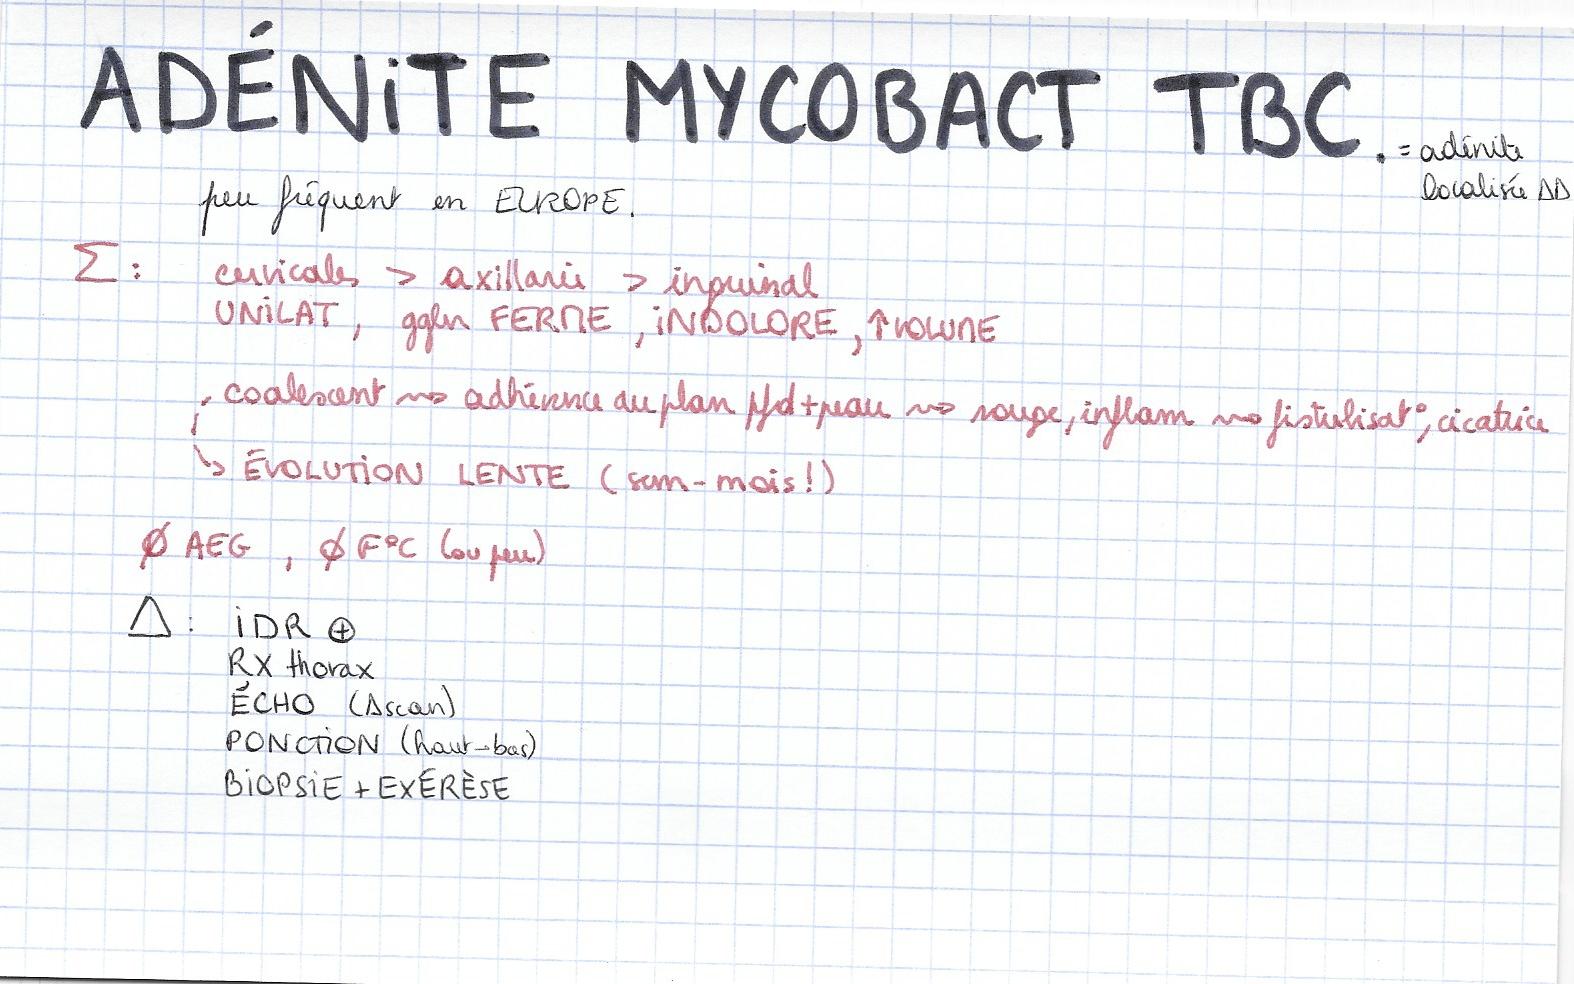 ADÉNiTE MYCOBACT TBC.
= adénite
localisée ΔΔ
peu fréquent en EUROPE.
Σ : cervicales > axillaire > inguinal
UNiLAT, ggln FERME, iNDOLORE, ↑VOLUME
, coalescent ⇝ adhérence au plan pfd + peau ⇝ rouge, inflam ⇝ fistulisat°, cicatrice
↳ ÉVOLUTiON LENTE (sem - mois!)
∅ AEG , ∅ F°C (ou peu)
Δ : iDR ⊕
RX thorax
ÉCHO (Δscan)
PONCTiON (haut→bas)
BiOPSiE + EXÉRÈSE